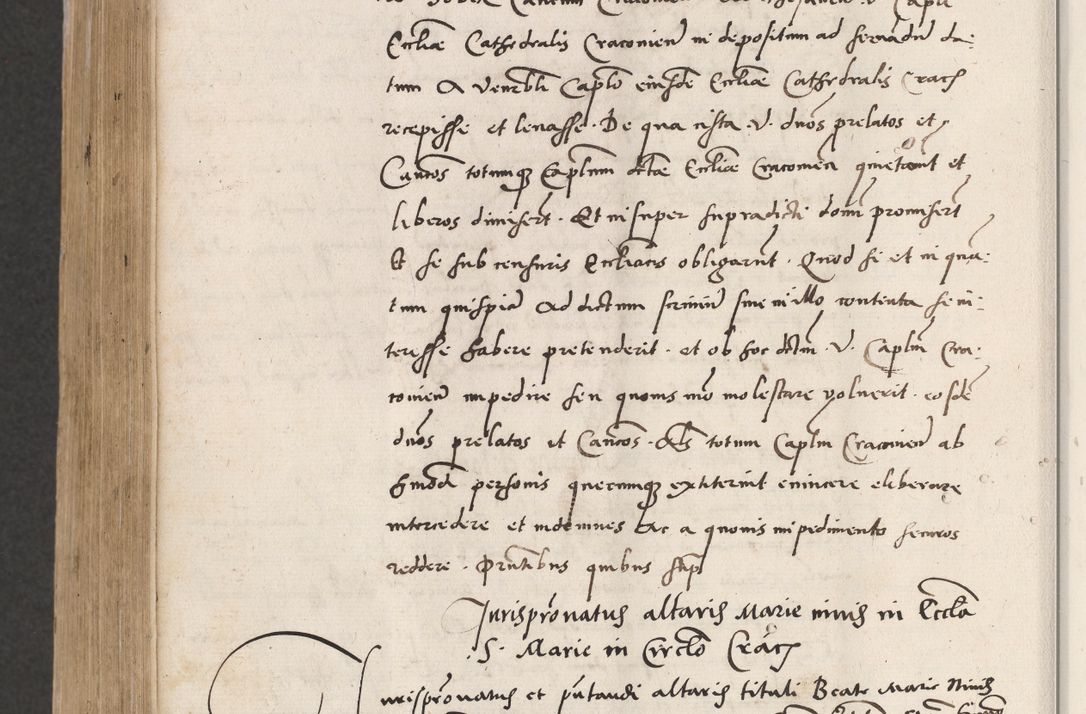 Ecclie Cathedralis Cracovien in depositum ad servandum da:
tum a Venrbli Caplo eiusde Ecclie Cathedralis Crac
recepisse et levasse. De qua cista. V. dnos prelatos et
Cancos totumq Caplum dtae Ecclie Cracovien quietarunt et
liberos dimisert. Et insuper supradicti domi promisert
et se sub censuris Ecclicis obligarunt. Quod si et in quan:
tum quispia ad dictum scrinium sive in illo contenta se in:
teresse habere pretenderit. et ob hoc dctm. V. Caplm Cra:
covien impedire seu quovis mo molestare voluerit. eosde
dnos prelatos et Cancos. Als totum Caplm Cracovien ab
hmodi personis quecumq extiterint evincere eliberare
intercedere et indemnes ac a quovis impedimento securos
reddere. Pntibus quibus sup
Jurispronatus altaris Marie nivis in Eccla
S. Marie in Circlo Crac
Jurispronatus et pntandi altaris tituli Beate Marie Nivis